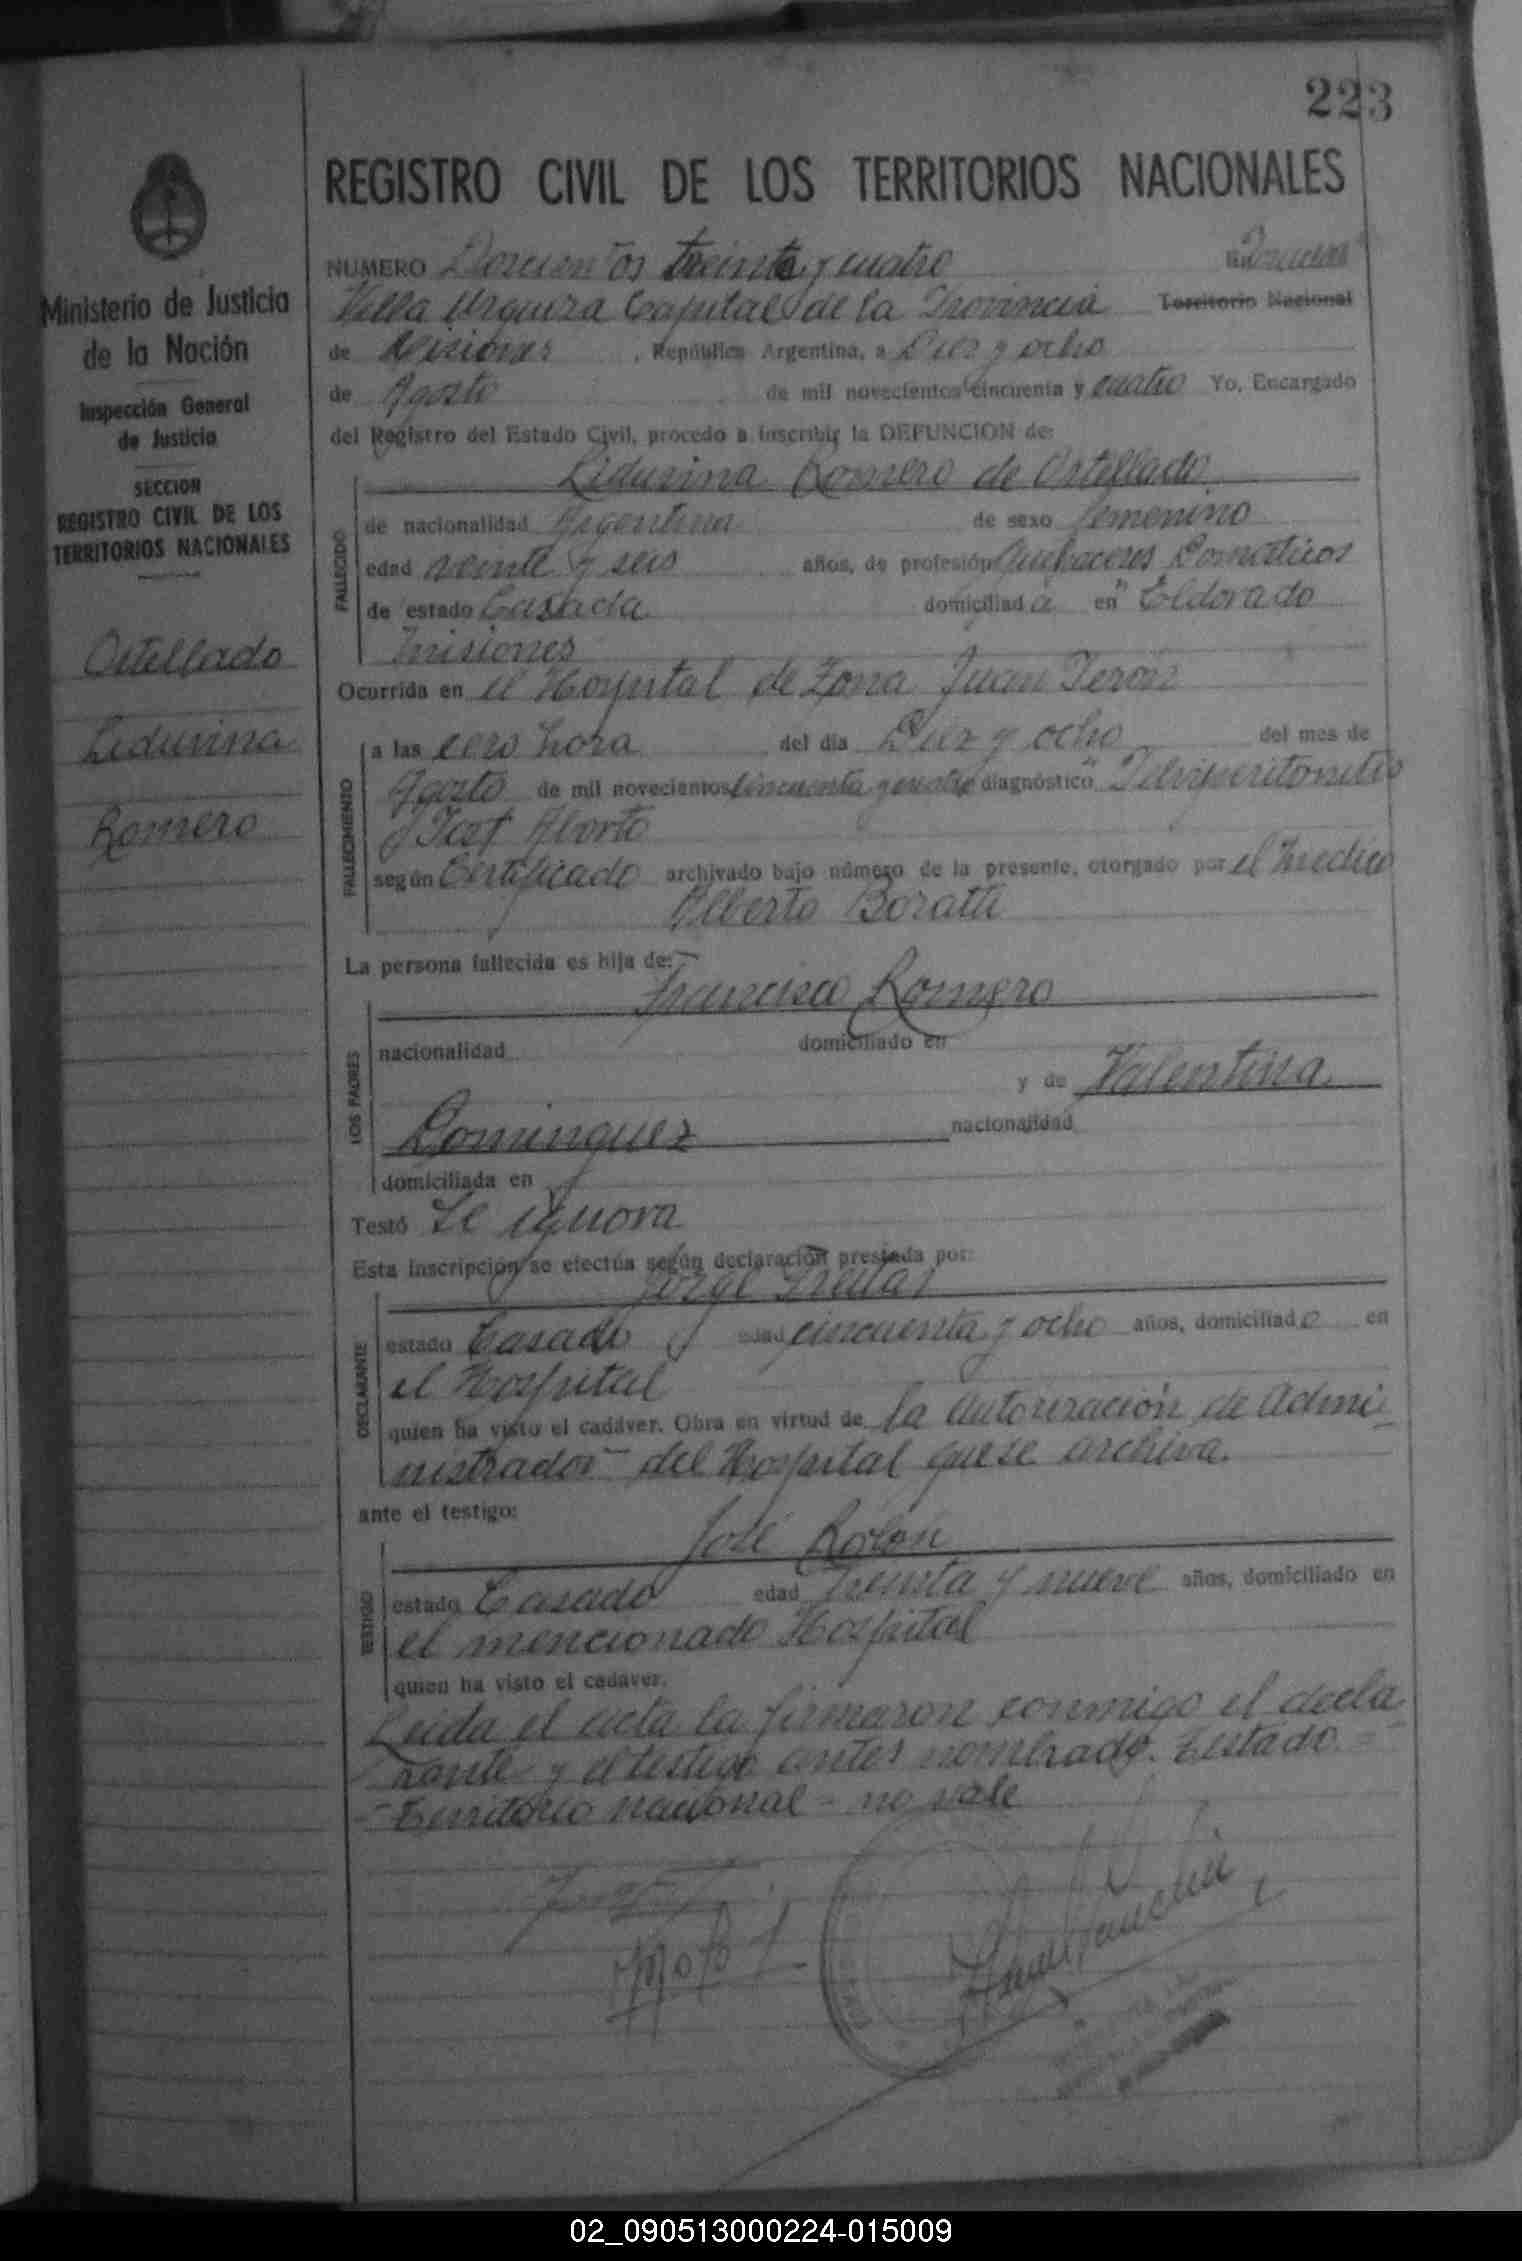 223
REGISTRO CIVIL DE LOS TERRITORIOS NACIONALES
Ministerio de Justicia
de la Nación
Inspección General
de Justicia
SECCION
REGISTRO CIVIL DE LOS
TERRITORIOS NACIONALES
Ostellado
Lidurina
Romero
NUMERO Doscientos treinta y cuatro En
Villa Urquiza Capital de la Provincia Territorio Nacional
de Misiones, República Argentina, a Diez y ocho
de Agosto de mil novecientos cincuenta y cuatro Yo, Encargado
del Registro del Estado Civil, procedo a inscribir la DEFUNCION de:
FALLECIDO
Lidurina Romero de Ostellado
de nacionalidad Argentina de sexo femenino
edad veinte y seis años, de profesión Quehaceres Domesticos
de estado Casada domiciliada en Eldorado
Misiones
Ocurrida en el Hospital de Zona Juan Perón
FALLECIMIENTO
a las cero hora del día Diez y ocho del mes de
Agosto de mil novecientos cincuenta y cuatro diagnóstico Pelviperitonitis
Post Aborto
según Certificado archivado bajo número de la presente, otorgado por el Medico
Alberto Boratti
La persona fallecida es hija de:
LOS PADRES
Francisco Romero
nacionalidad domiciliado en
y de Valentina
Dominguez nacionalidad
domiciliada en
Testó Se ignora
Esta inscripción se efectúa según declaración prestada por:
DECLARANTE
Jorge
estado Casado edad cincuenta y ocho años, domiciliado en
el Hospital
quien ha visto el cadáver. Obra en virtud de la autorización de Admi-
nistrador del Hospital que se archiva.
ante el testigo:
TESTIGO
José Rolón
estado Casado edad Treinta y nueve años, domiciliado en
el mencionado Hospital
quien ha visto el cadaver.
Leida el acta la firmaron conmigo el decla-
rante y el testigo antes nombrado. Testado =
- Territorio nacional - no vale
02_090513000224-015009